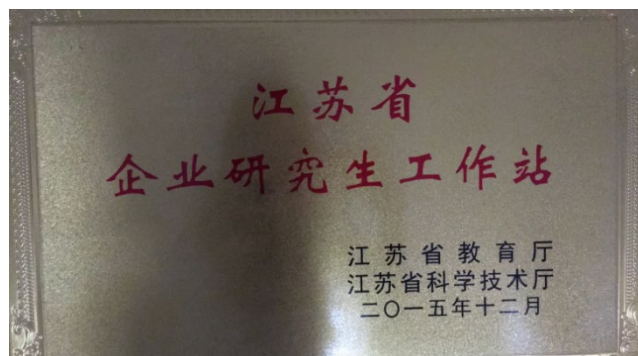 江苏省
企业研究生工作站
江苏省教育厅
江苏省科学技术厅
二〇一五年十二月